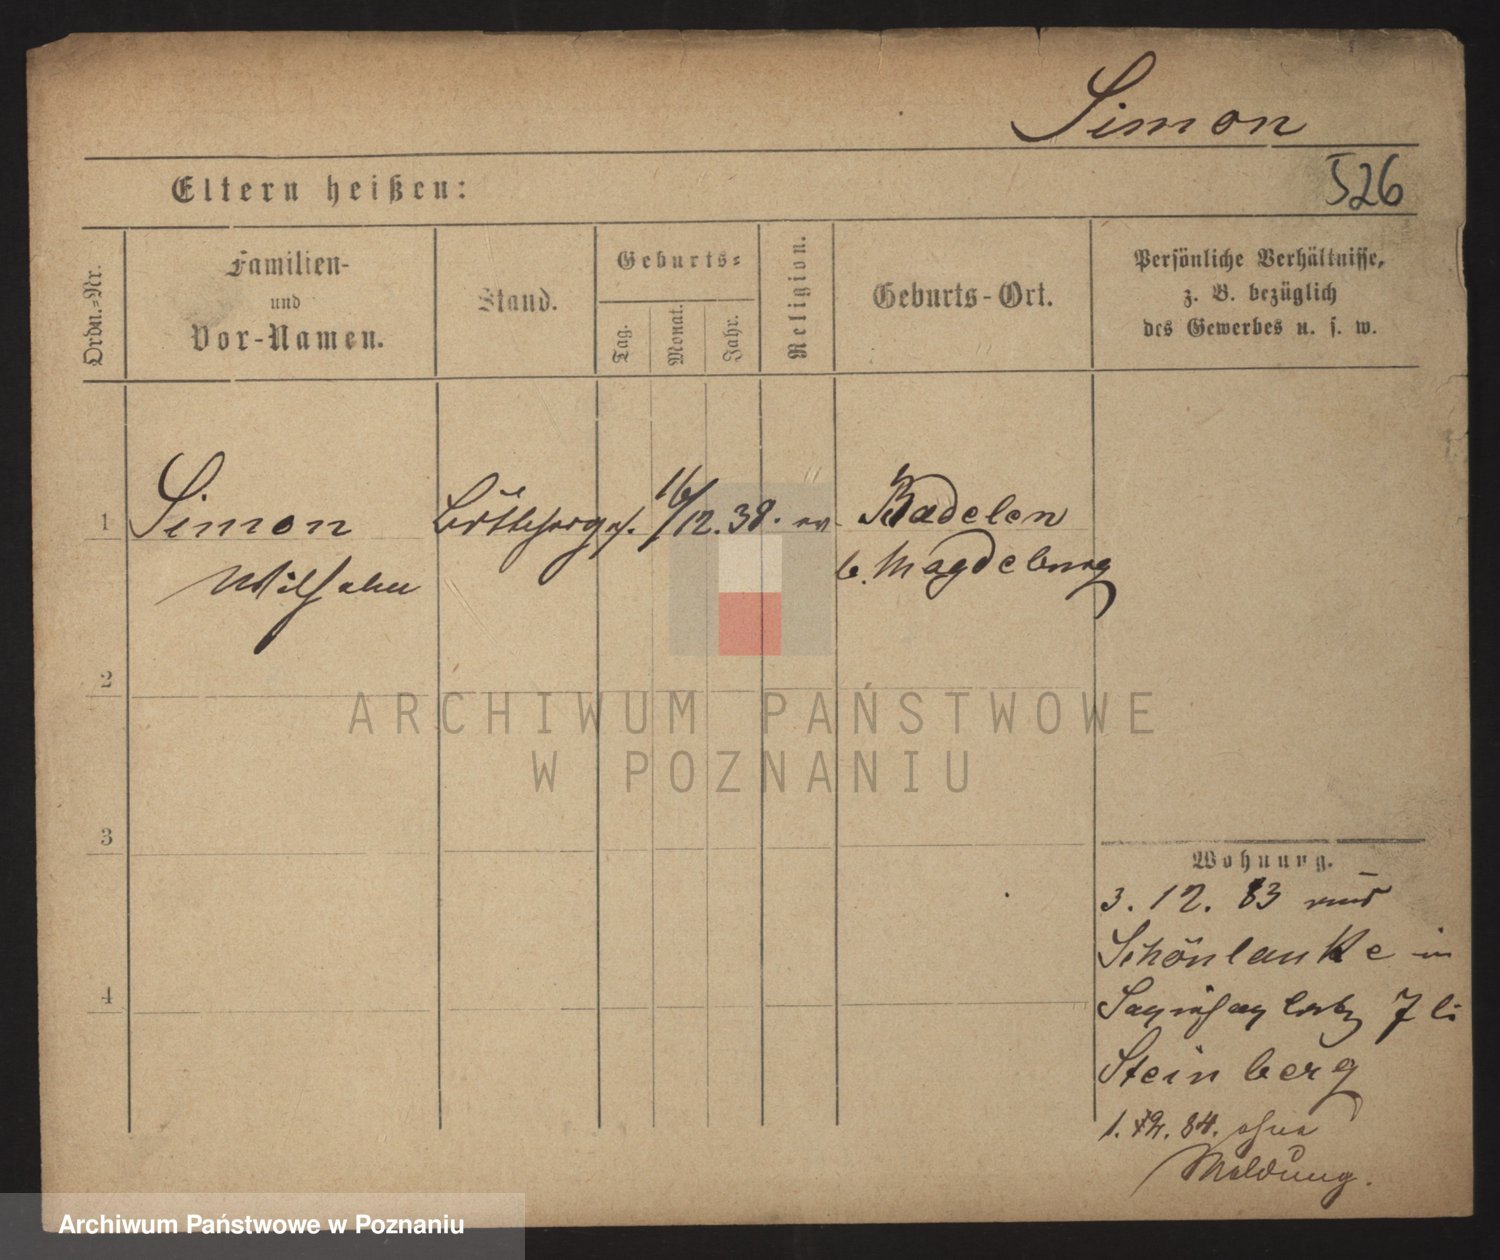 Simon
526
Eltern heißen:
Ordn.-Nr.
Familien-
und
Vor-Namen.
Stand.
Geburts-
Tag.
Monat.
Jahr.
Religion.
Geburts-Ort.
Persönliche Verhältnisse,
z. B. bezüglich
des Gewerbes u. s. w.
1
Simon
Wilhelm
Böttcherges.
16/12. 38. ev.
Badelen
b. Magdeburg
2
ARCHIWUM PAŃSTWOWE
W POZNANIU
3
4
Wohnung.
3. 12. 83 aus
Schönlanke in
7 bei
Steinberg
84. ohne
Meldung.
Archiwum Państwowe w Poznaniu